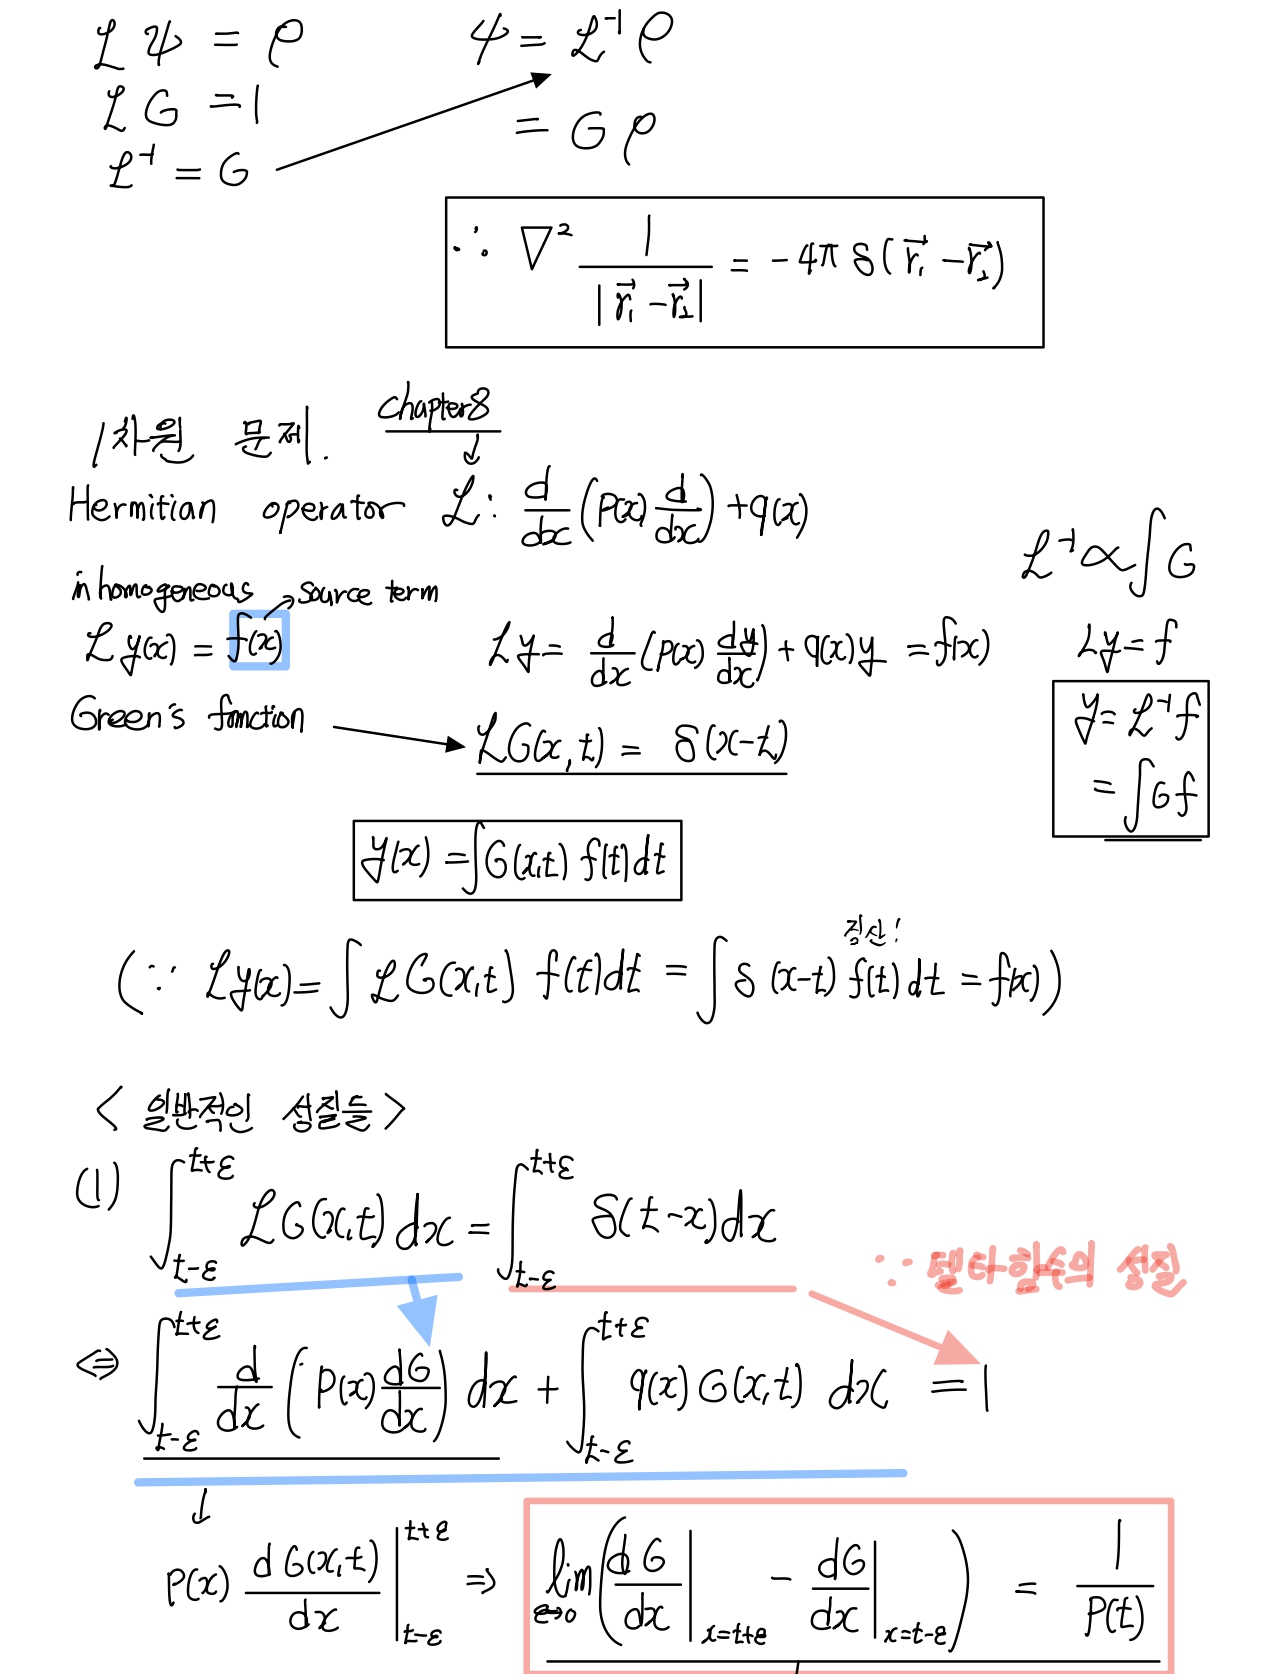 ℒψ = ρ    ψ = ℒ⁻¹ρ
ℒG = 1    = Gρ
ℒ⁻¹ = G
∴ ∇² 1/|r⃗₁ - r⃗₂| = -4π δ(r⃗₁ - r⃗₂)
1차원 문제. chapter8
Hermitian operator ℒ: d/dx (p(x) d/dx) + q(x)
ℒ⁻¹ ∝ ∫G
inhomogeneous source term
ℒy(x) = f(x)    ℒy = d/dx (p(x) dy/dx) + q(x)y = f(x)    ℒy = f
Green's function    ℒG(x,t) = δ(x-t)    y = ℒ⁻¹f
= ∫Gf
y(x) = ∫G(x,t) f(t)dt
짐산!
(∵ ℒy(x) = ∫ℒG(x,t) f(t)dt = ∫δ(x-t) f(t)dt = f(x))
< 일반적인 성질들 >
(1) ∫_{t-ε}^{t+ε} ℒG(x,t) dx = ∫_{t-ε}^{t+ε} δ(t-x)dx
∵ 델타함수의 성질
⇔ ∫_{t-ε}^{t+ε} d/dx (p(x) dG/dx) dx + ∫_{t-ε}^{t+ε} q(x)G(x,t) dx = 1
p(x) dG(x,t)/dx |_{t-ε}^{t+ε} ⇒ lim_{ε→0} (dG/dx |_{x=t+ε} - dG/dx |_{x=t-ε}) = 1/p(t)